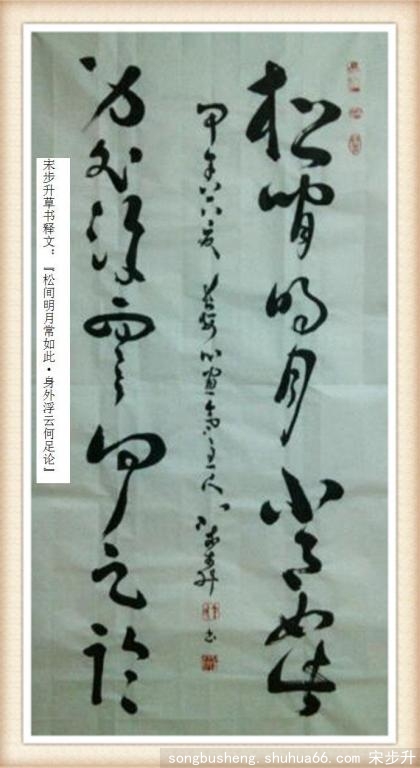 松間明月常如此
甲午 主人宋步升 书
身外浮雲何足論
宋步升草书释文：『松间明月常如此·身外浮云何足论』
songbusheng.shuhua66.com 宋步升